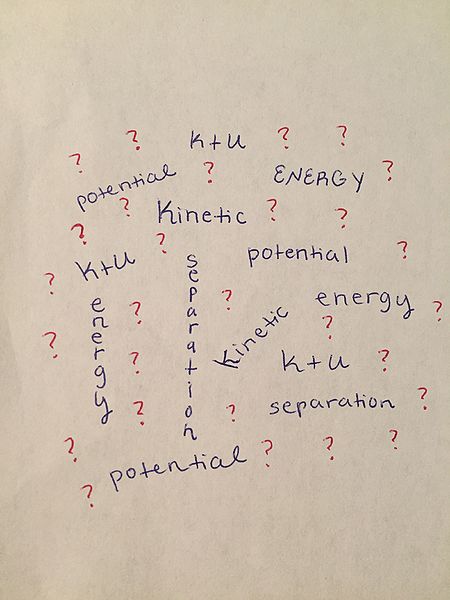 ? K+U ? ?
?
potential ? ENERGY ?
? Kinetic ? ?
? ?
K+U separation potential ?
?
energy ? ? Kinetic energy ?
? ?
? K+U ?
? ? separation ?
? potential ? ? ?
?